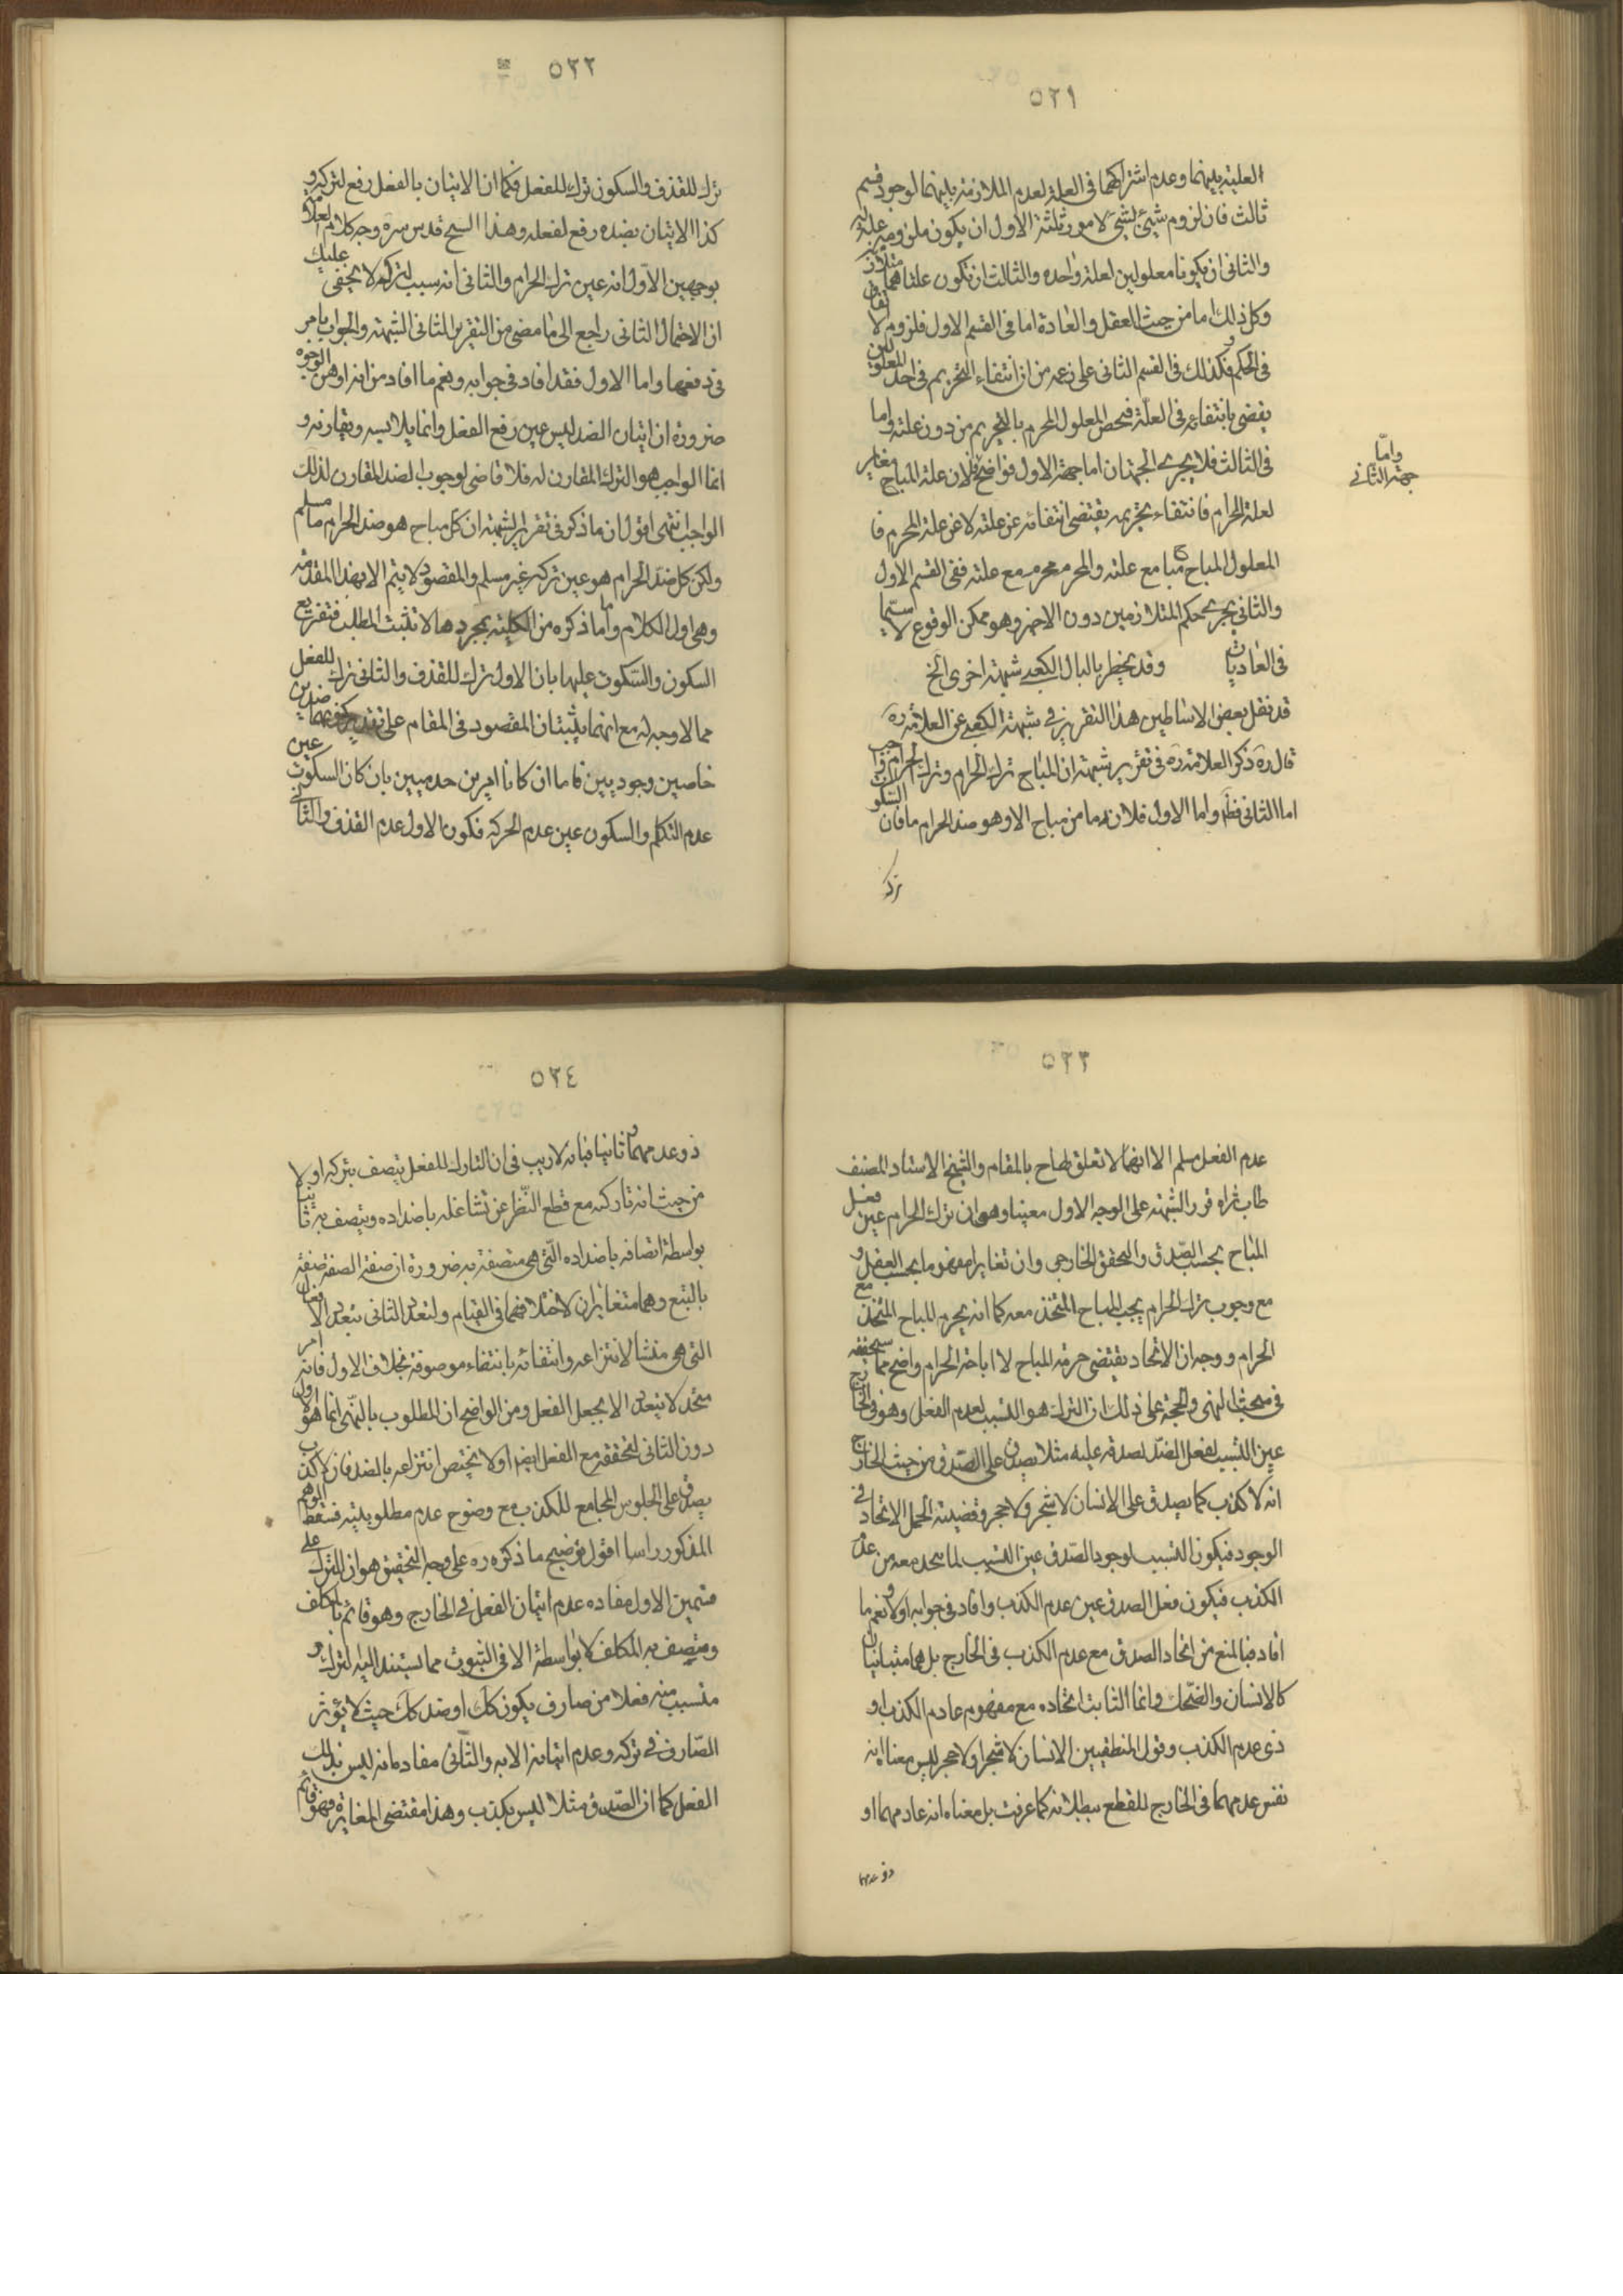 ٥٢١
العلية بينهما وعدم اشتراكهما فى العلة لعدم الملازمة بينهما لوجود قسم
ثالث فان لزوم شيئ لشيئ لامور ثلثة الاول ان يكون ملزومه علة له
والثانى ان يكونا معلولين لعلة واحدة والثالث ان تكون علتاهما متلازمتين
وكل ذلك اما من حيث العقل والعادة اما فى القسم الاول فلزوم لا
فى الحكم وكذلك فى القسم الثانى على زعمه من ان انتفاء التحريم فى احد المعلولين
يقضى بانتفائه فى العلة فيختص المعلول المحرم بالتحريم من دون علته واما
فى الثالث فلا يجرى الجهتان اما جهة الاول فواضح فلان علة المباح مغاير
واما
جهة الثانى
لعلة الحرام فانتفاء تحريمه يقتضى انتفائه عن علته لا عن علة المحرم فا
المعلول المباح مباح مع علته والمحرم محرم مع علته ففى القسم الاول
والثانى يجرى حكم المتلازمين دون الاخر وهو ممكن الوقوع لا سيّما
فى العاديات وقد يخطر بالبال الكعبى شبهة اخرى الخ
قد نقل بعض الاساطين هذا التقرير فى شبهة الكعبى عن العلامة ره
قال ره ذكر العلامة ره فى تقرير شبهته ان المباح ترك الحرام وترك الحرام واجب
اما الثانى فظ واما الاول فلانه ما من مباح الا وهو ضد لحرام ما فان السكوت
ترك
٥٢٢
ترك للقذف والسكون ترك للفعل فكما ان الاتيان بالفعل رفع لتركه و
كذا الاتيان بضده رفع لفعله وهذا الشيخ قدس سره وجه كلام العلامة
بوجهين الاول انه عين ترك الحرام والثانى انه سبب لتركه لا يخفى عليك
ان الاحتمال الثانى راجع الى ما مضى من التقرير الثانى الشبهة والجواب ما مر
فى دفعها واما الاول فقد افاد فى جوابه ونعم ما افاد من انه اوهن الوجوه
ضرورة ان اتيان الضد ليس عين رفع الفعل وانما يلابسه ويقارنه و
انما الواجب هو الترك المقارن له فلا قاضى لوجوب الضد المقارن لذلك
الواجب انتهى اقول ان ما ذكر فى تقرير الشبهة ان كل مباح هو ضد الحرام ما مسلم
ولكن كل ضد الحرام هو عين تركه غير مسلم والمقصود لا يتم الا بهذا المقدمة
وهى اول الكلام واما ما ذكره من الكلية بمجردها لا تثبت المطلب فتفريع
السكون والسكوت عليها بان الاول ترك للقذف والثانى ترك للفعل
مما لا وجه له مع انهما يثبتان المقصود فى المقام على تقدير كونهما ضدين
خاصين وجوديين فاما ان كانا امرين عدميين بان كان السكوت عين
عدم التكلم والسكون عين عدم الحركة فكون الاول عدم القذف والثانى
٥٢٣
عدم الفعل مسلم الا انهما لا تعلق لهما ح بالمقام والشيخ الاستاد المصنف
طاب ثراه قرر الشبهة على الوجه الاول معينا وهو ان ترك الحرام عين فعل
المباح بحسب الصدق والتحقق الخارجى وان تغايرا مفهوما بحسب العقل و
مع وجوب ترك الحرام يجب المباح المتحد معه كما انه يحرم المباح المتحد مع
الحرام ووجه ان الاتحاد يقتضى حرمة المباح لا اباحة الحرام واضح مما سنحققه
فى مبحث النهى والحجة على ذلك ان الترك هو التسبب لعدم الفعل وهو فى الخارج
عين التسبب لفعل الضد لصدقه عليه مثلا يصدق على الصدق من حيث الخارج
انه لا كذب كما يصدق على الانسان لا شجر ولا حجر وقضية الحمل الاتحاد فى
الوجود فيكون التسبب لوجود الصدق عين التسبب لما يتحد معه من عدم
الكذب فيكون فعل الصدق عين عدم الكذب وافاد فى جوابه اولا ونعم ما
افاد فبالمنع من اتحاد الصدق مع عدم الكذب فى الخارج بل هما متباينان
كالانسان والضحك وانما الثابت اتحاده مع مفهوم عادم الكذب او
ذى عدم الكذب وقول المنطقيين الانسان لا شجر ولا حجر ليس معناه انه
نفس عدمهما فى الخارج للقطع ببطلانه كما عرفت بل معناه انه عادمهما او
ذو عدمهما
٥٢٤
ذو عدمهما وثانيا فبانه لا ريب فى ان التارك للفعل يتصف بتركه اولا
من حيث انه تاركه مع قطع النظر عن تشاغله باضداده ويتصف به ثانيا
بواسطة اتصافه باضداده التى هى متصفة به ضرورة ان صفة الصفة صفة
بالتبع وهما متغايران لاختلافهما فى القيام ولتعدد الثانى بتعدد الافعال
التى هى منشا لانتزاعه وانتفائه بانتفاء موصوفه بخلاف الاول فانه امر
متحد لا يتعدد الا بجعل الفعل ومن الواضح ان المطلوب بالنهى انما هو الاول
دون الثانى لتحققه مع الفعل ايضا ولا يختص انتزاعه بالضد فان لا كذب
يصدق على الجلوس المجامع للكذب مع وضوح عدم مطلوبيته فسقط الوهم
المذكور راسا اقول توضيح ما ذكره ره على وجه التحقيق هو ان للترك على
قسمين الاول مفاده عدم اتيان الفعل فى الخارج وهو قائم بالمكلف
ومتصف به المكلف لا بواسطة الا فى الثبوت مما يستند اليه الترك و
متسبب منه فعلا من صارف يكون كك او ضد كك حيث لا يؤثر
الصارف فى تركه وعدم اتيانه الا به والثانى مفاده انه ليس بذلك
الفعل كما ان الصدق مثلا ليس بكذب وهذا مقتضى المغايرة وهو قائم